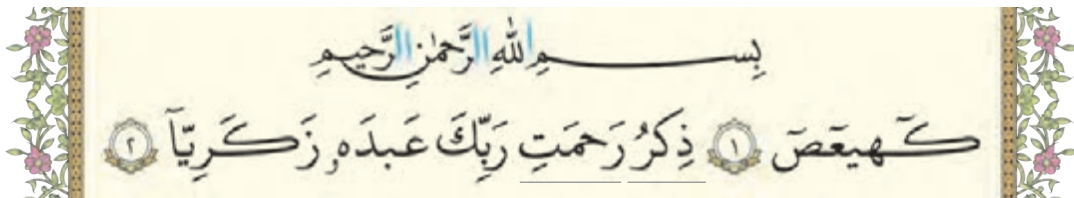 بِسمِ اللهِ الرَّحمٰنِ الرَّحيمِ
كَهيعَصَ ١ ذِكرُ رَحمَتِ رَبِّكَ عَبدَهُ زَكَرِيَّآ ٢